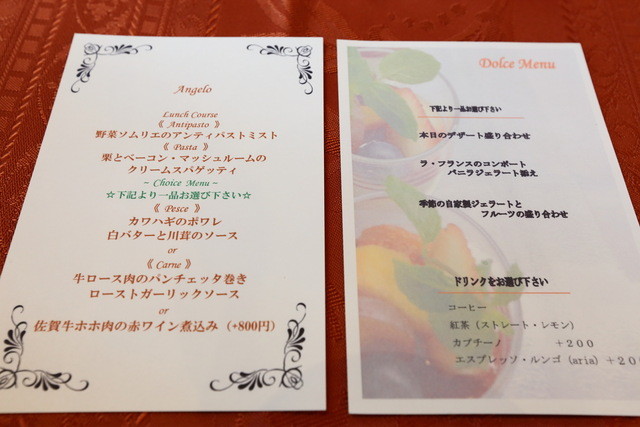 Angelo
Lunch Course
《 Antipasto 》
野菜ソムリエのアンティパストミスト
《 Pasta 》
栗とベーコン・マッシュルームの
クリームスパゲッティ
~ Choice Menu ~
☆下記より一品お選び下さい☆
《 Pesce 》
カワハギのポワレ
白バターと川茸のソース
or
《 Carne 》
牛ロース肉のパンチェッタ巻き
ローストガーリックソース
or
佐賀牛ホホ肉の赤ワイン煮込み（+800円）
Dolce Menu
下記より一品お選び下さい
本日のデザート盛り合わせ
ラ・フランスのコンポート
バニラジェラート添え
季節の自家製ジェラートと
フルーツの盛り合わせ
ドリンクをお選び下さい
コーヒー
紅茶（ストレート・レモン）
カプチーノ +200
エスプレッソ・ルンゴ（aria）+200